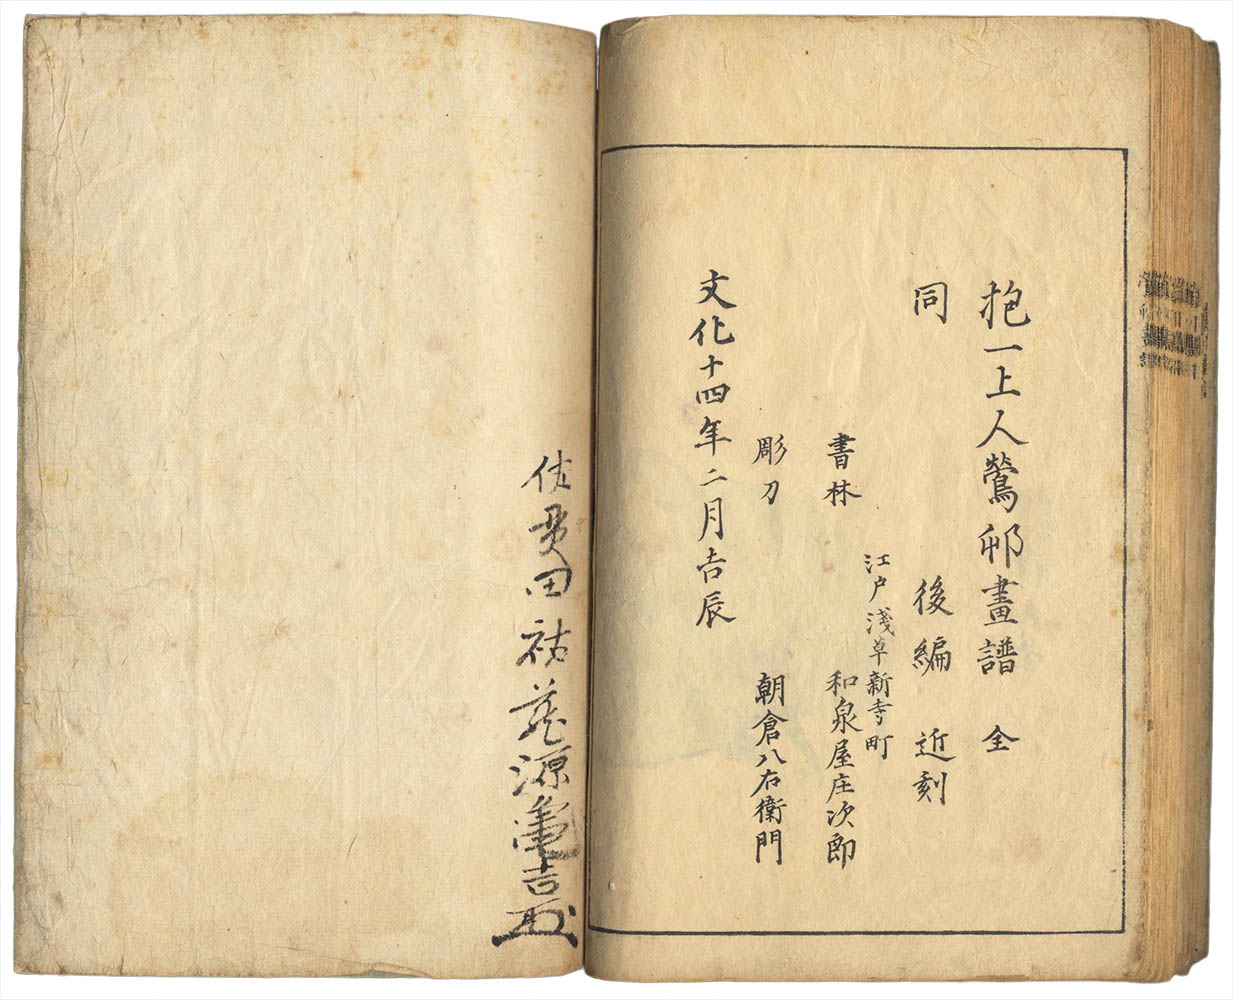 抱一上人鶯邨畫譜 全
同 後編 近刻
江戸淺草新寺町
書林 和泉屋庄次郎
彫刀 朝倉八右衛門
文化十四年二月吉辰
田 源亀吉